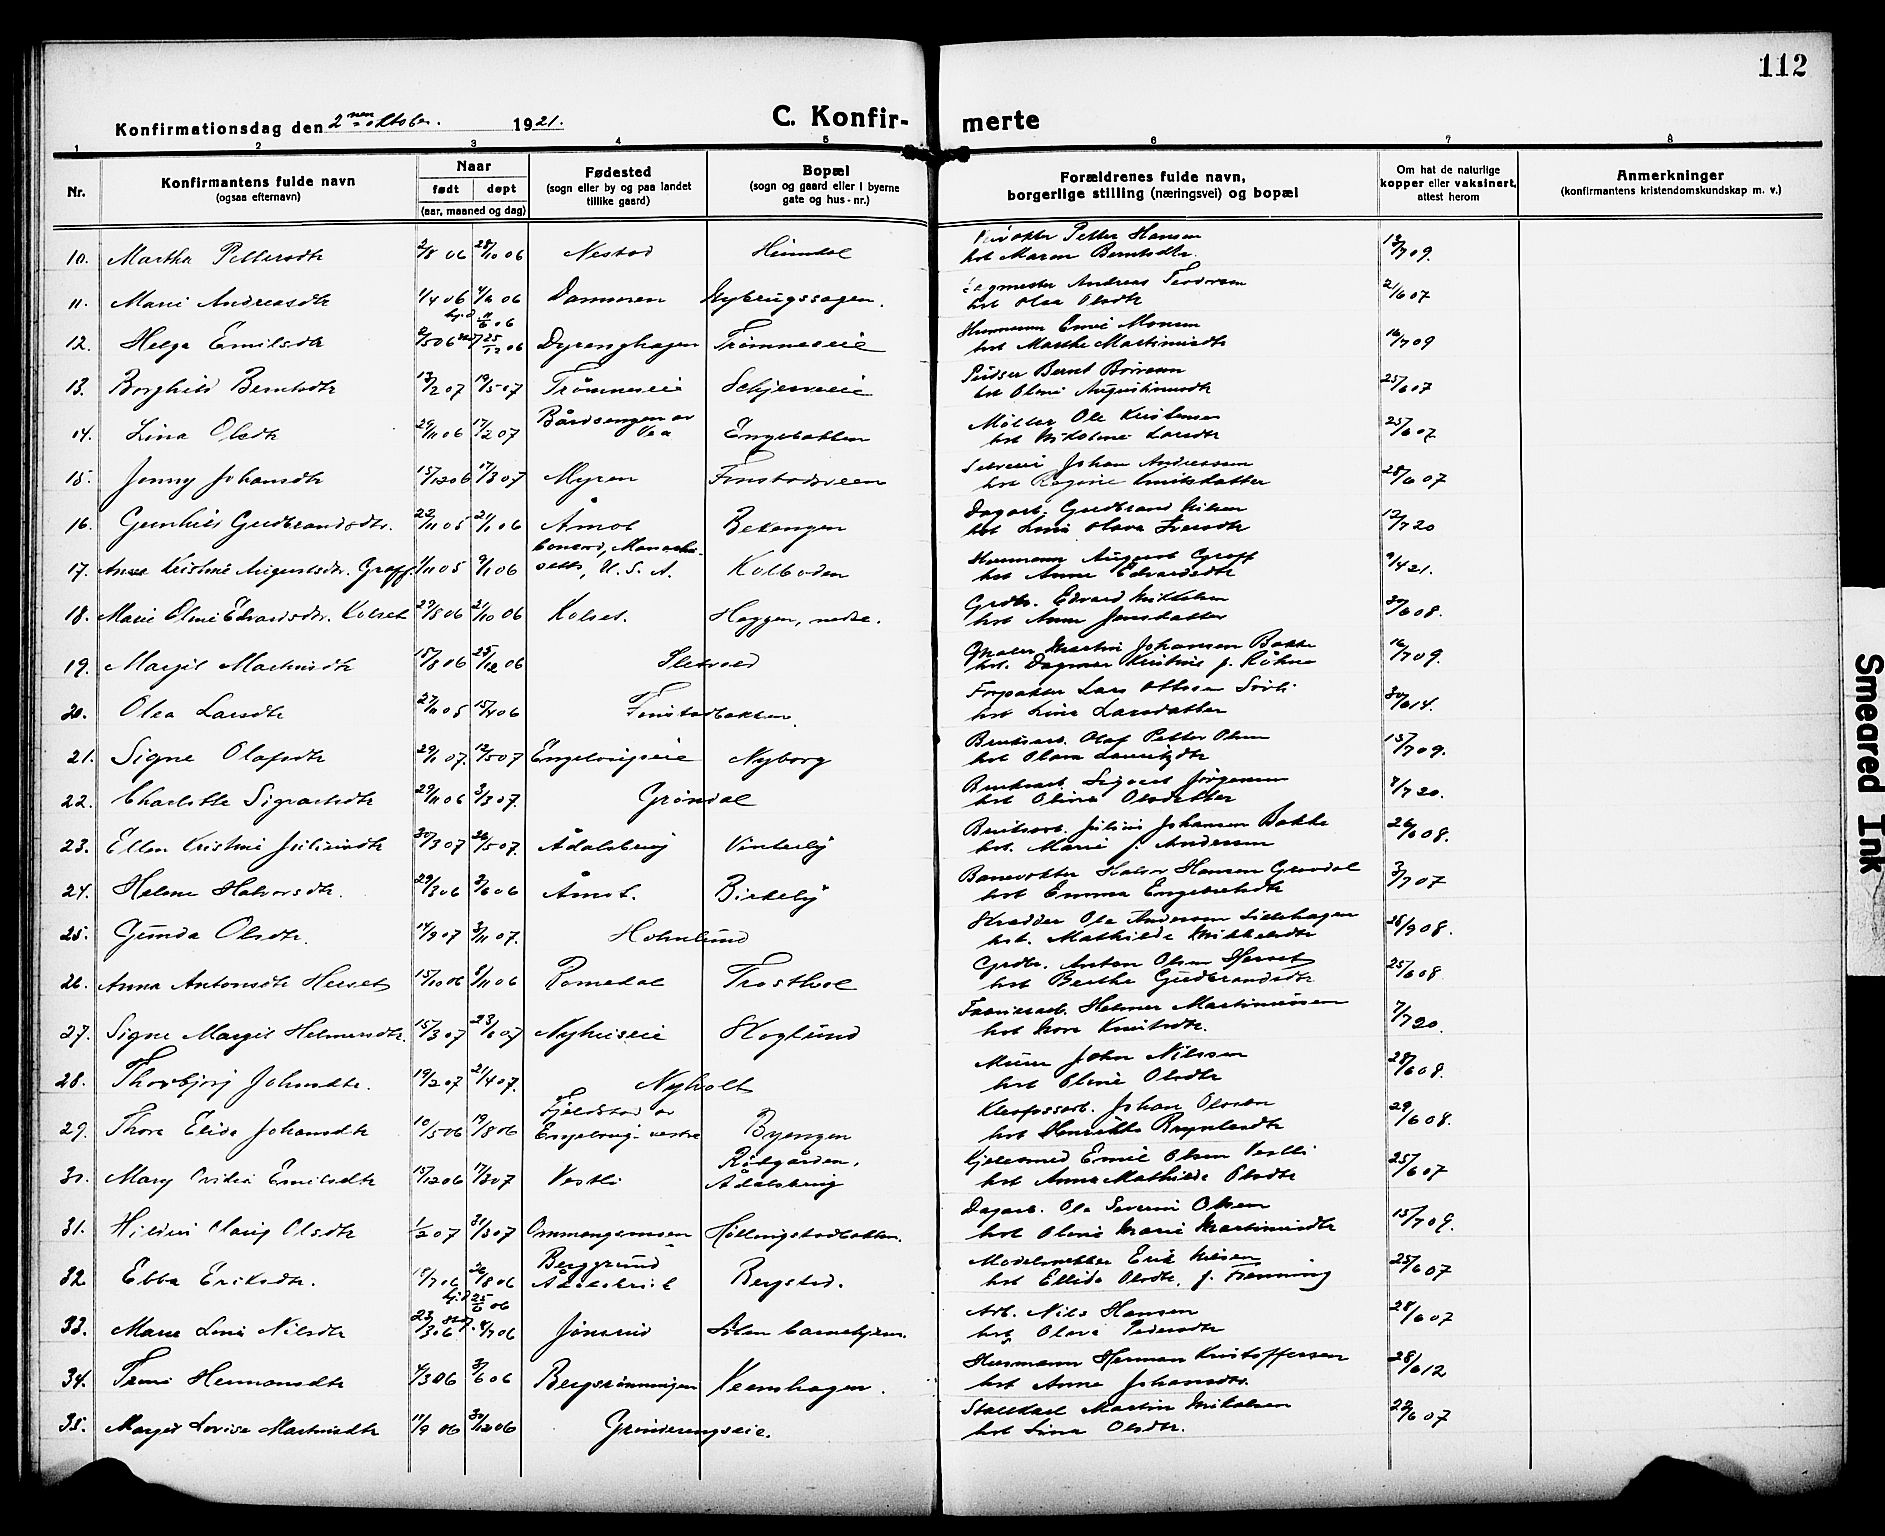 112
Konfirmationsdag den 2 nen oktober. 1921.
C. Konfir- merte
1 2 3 4 5 6 7 8
Nr.
Konfirmantens fulde navn
(ogsaa efternavn)
Naar
født døpt
(aar, maaned og dag)
Fødested
(sogn eller by og paa landet
tillike gaard)
Bopæl
(sogn og gaard eller i byerne
gate og hus-nr.)
Forældrenes fulde navn,
borgerlige stilling (næringsvei) og bopæl
Om hat de naturlige
kopper eller vaksinert,
attest herom
Anmerkninger
(konfirmantens kristendomskundskap m. v.)
10. Martha Pettersdtr 2/8 06 28/10 06 Nestad Petter Hansen
hst Maren Berntsdtr. 09.
11. Marie Andreasdtr 1/4 06 06 Dammen Nybrugssagen. Andreas
hst Olea Olsdtr 21/6 07
12. Helga Emilsdtr 06 Dyrenghagen Trømneseie Emil Monsen
hst Marthe Martinusdtr 16/7 09
13. Borghild Berntsdtr 13/2 07 19/5 07 Trømneseie Schjerneie Bernt
hst Oline Augustinusdtr 25/6 07
14. Lina Olsdtr 29/11 06 17/2 07 Bårdsengen av Vea Engebakken Møller Ole Kristiansen
hst Nikoline Larsdtr 25/6 07
15. Jenny Johansdtr 15/12 06 17/3 07 Myren Finstadsveen Johan Andreassen
hst Regine Knutsdatter 28/6 07
16. Gunhild Gudbrandsdtr. 22/11 05 21/1 06 Åmot Bekengen Dagarb. Gudbrand Nilsen
hst Lina Olava Iversdtr 12/7 20
17. Anna Kristine Augustsdtr. Graff. 1/11 05 9/1 06 U. S. A. Kolboden August Graff
hst Anna Edvardsdtr 9/4 21.
18. Marie Oline Edvardsdtr. Kolset 27/8 06 21/10 06 Kolset. Haggen, nedre. Grdbr. Edvard Mikkelsen
hst Anna Jensdatter 30/6 08.
19. Margit Martinsdtr 15/8 06 25/12 06 Sletvold Martin Johansen Bakke
hst. Dagmar Kristine f. Røhne 16/7 09.
20. Olea Larsdtr 27/11 05 15/4 06 Finstadbakken. Forpakter Lars Ottesen
hst Lina Larsdatter 30/6 14.
21. Signe Olafsdtr 29/1 07. 12/5 07 Engelaugseie Nyborg Bruksarb. Olaf Petter Olsen
hst Olava Lauritzdtr 15/7 09.
22. Charlotte Sigvartsdtr 29/11 06 3/3 07. Grøndal Bruksarb Sigvart Jørgensen
hst Olina Olsdatter 7/7 20.
23. Ellen Kristine Juliusdtr 30/3 07 26/5 07. Ådalsbrug Vinterly Bruksarb. Julius Johansen Bakke
hst. Marie f. Andersen 26/6 08.
24. Helene Halvorsdtr. 29/3 06 3/6 06 Åmot. Birkely Banevokter Halvor Hansen Grøndal
hst Emma Engebretsdtr 3/7 07
25. Gunda Olsdtr. 14/9 07 3/11 07. Holmlund Skrædder Ole Andersen Lillehagen
hst. Mathilde Mikkelsdtr 26/9 08.
26. Anna Antonsdtr Herset 15/10 06 9/11 06 Romedal Trosthol Grdbr. Anton Olsen Herset
hst Berthe Gudbrandsdtr 25/6 08.
27. Signe Margit Helmersdtr. 15/3 07 23/6 07 Nyhuseie Skoglund Helmer Martinussen
hst Nora Knutsdtr. 7/7 20.
28. Thorbjørg Johnsdtr. 19/2 07 21/4 07. Nyholt Murer John Nilssen
hst Oline Olsdtr 28/6 08.
29. Thora Elida Johansdtr 10/5 06 19/8 06 Fjeldstad av Engelaug vestre Byengen Johan Olsen
hst Henrikke Bryntesdtr 29/6 08.
30. Mary Ovidia Emilsdtr 15/12 06 17/3 07 Vestli Rødgården, Ådalsbrug Kjelesmed Emil Olsen Vestli
hst Anna Mathilde Olsdtr 25/6 07
31. Hildur Olaug Olsdtr 1/2 07 31/3 07 Ommangsmoen Hellingstadbakken. Dagarb. Ole Severin Olsen
hst Oline Marie Martinusdtr 15/7 09.
32 Ebba Eriksdtr. 18/7 06 26/8 06 Berggrund Ådalsbruk Bergstad. Modelsnekker Erik Nilsen
hst Ellida Olsdtr. f. Frenning 25/6 07
33. Marie Nilsdtr 23/3 06 25/5 06 06 Jønsrud Liten barnehjem. Arb. Nils Hansen
hst Olava Pedersdtr 28/6 07
34. Hermansdtr 4/3 06 3/6 06 Bergsrønningen Kvernhagen. Husmann Herman Kristoffersen
hst Anne Johansdtr. 28/6 12
35. Margit Lovise Martinsdtr 11/9 06 30/12 06 Grønderengseie. Staldkarl Martin Mikalsen
hst Lina Olsdtr. 28/6 07
Smeared Ink